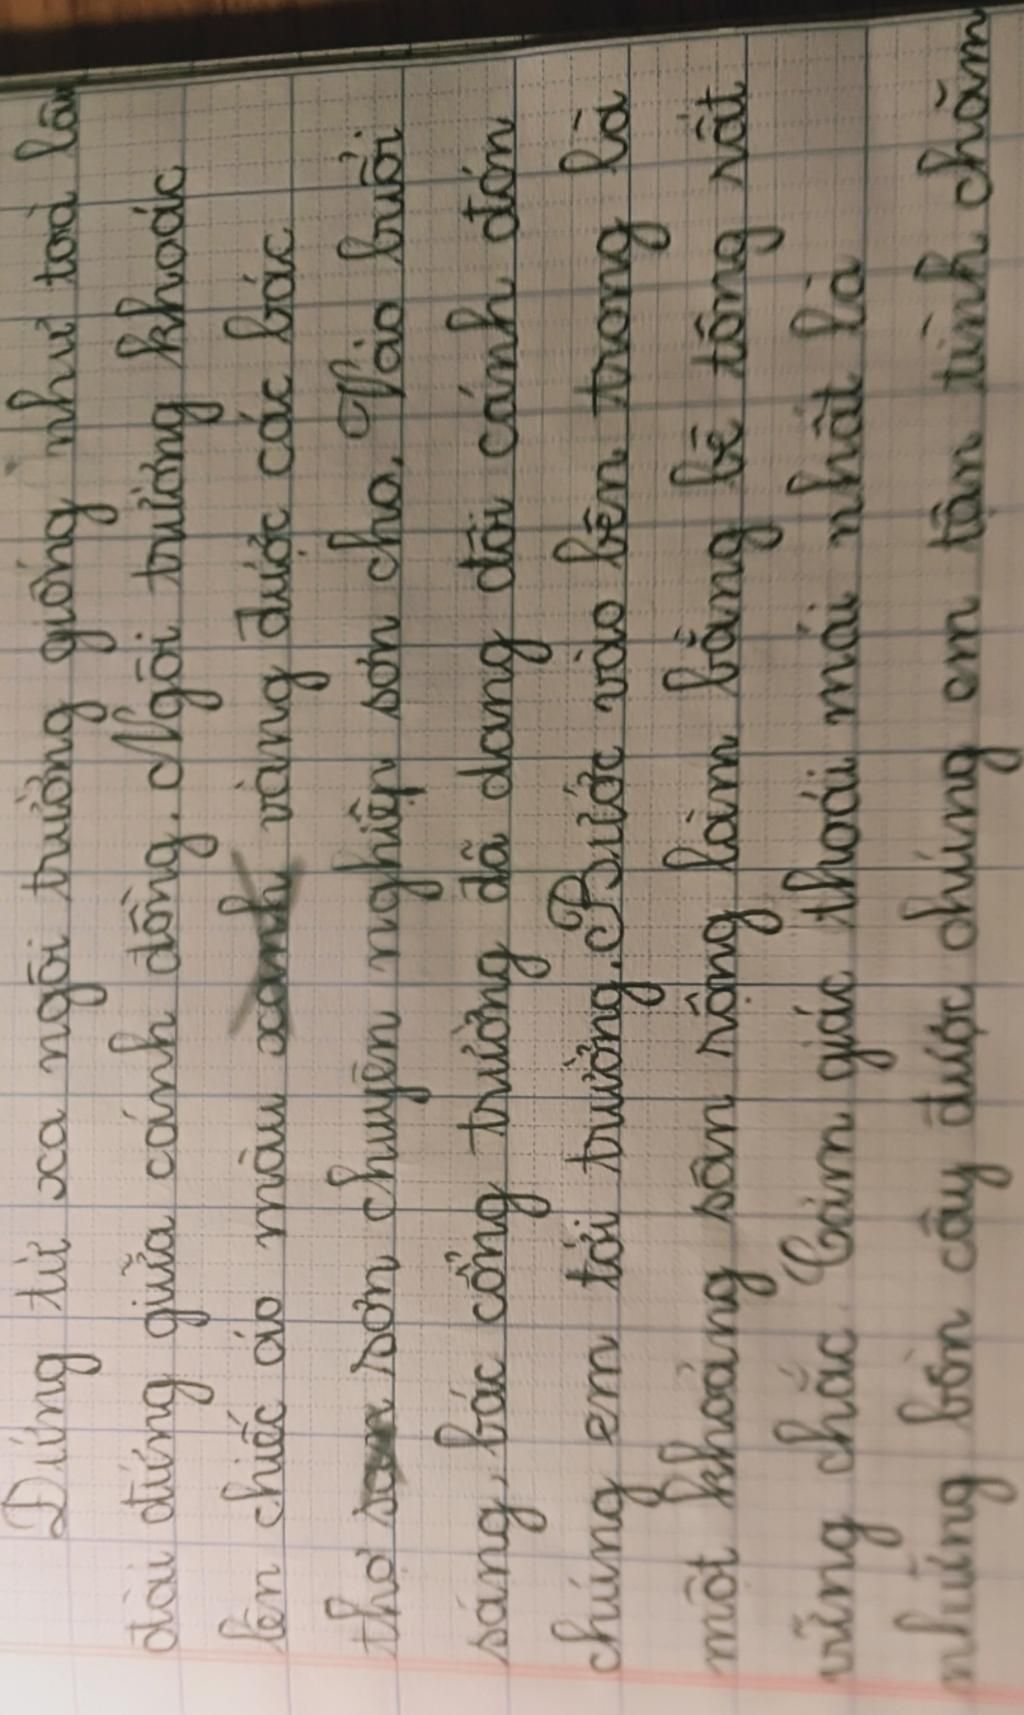 Đứng từ xa ngôi trường giống như toà lâu
đài đứng giữa cánh đồng. Ngôi trường khoác
lên chiếc áo màu xanh vàng được các bác
thợ sơn chuyên nghiệp sơn cho. Vào buổi
sáng, bác cổng trường đã dang đôi cánh đón
chúng em tới trường. Bước vào bên trong là
một khoảng sân rộng làm bằng bê tông rất
vững chắc. Cảm giác thoải mái nhất là
những bồn cây được chúng em tận tình chăm